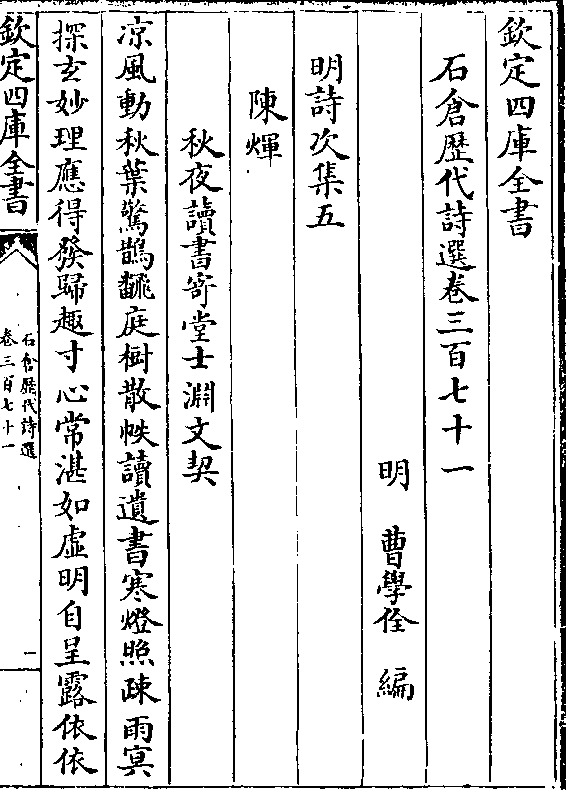 欽定四庫全書
石倉歴代詩選卷三百七十一
明　曹學佺　編
明詩次集五
陳煇
秋夜讀書寄堂士淵文契
凉風動秋葉驚鵲翻庭樹散帙讀遺書寒燈照疎雨冥
探玄妙理應得發歸趣寸心常湛如虛明自呈露依依
欽定四庫全書
石倉歷代詩選
卷三百七十一
一